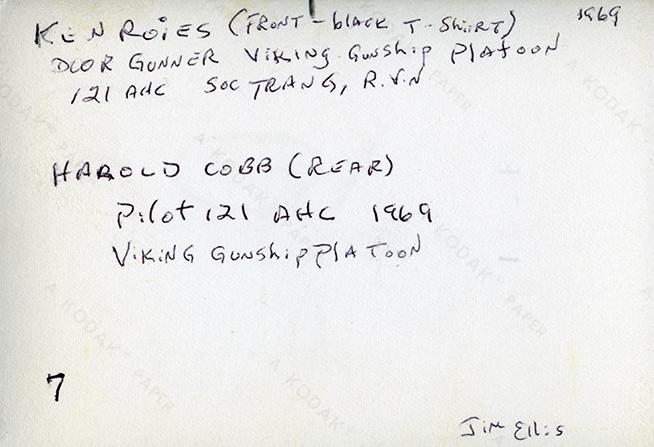 KEN ROIES (FRONT-black T-Shirt) 1969
DOOR GUNNER VIKING Gunship PlAtOON
121 AHC SOC TRANG, R.V.N
HAROLD COBB (REAR)
Pilot 121 AHC 1969
VIKING GunshipPlATOON
7
Jim Ellis
A KODAK PAPER